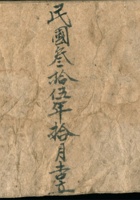 民國叁拾伍年拾月立